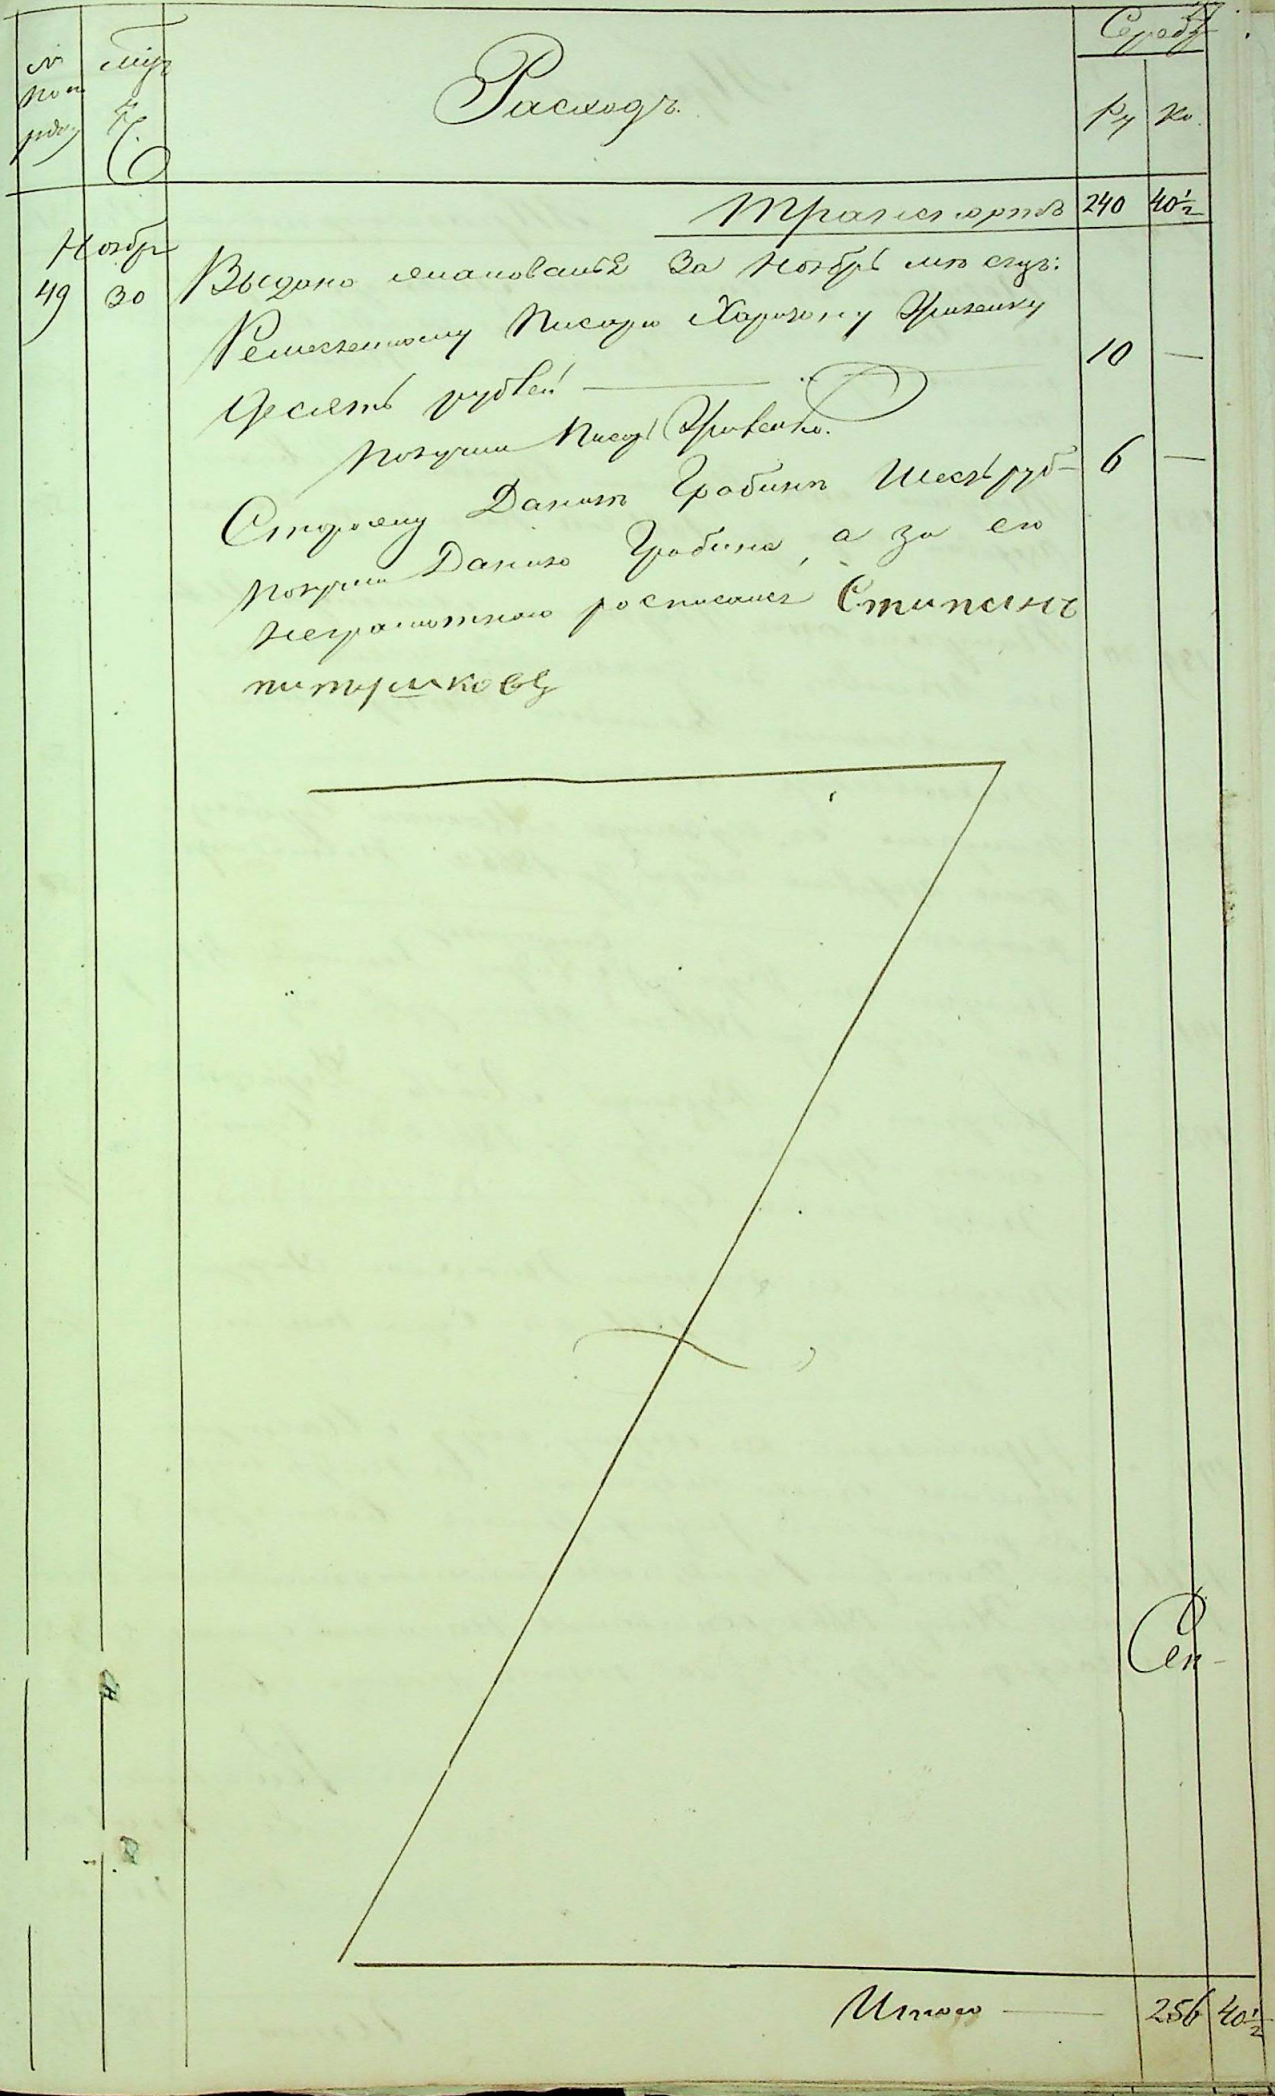 17
№ по по рдку
Мцъ и Чи.
Расходъ
Серебр
Ру Ко.
Транспортъ 240 40½
Ноябр
49 30 Выдано жалованья За Ноябрь месяцъ:
Ремесленному Писарю Харитону Кривенку
Десять рублей 10 —
Получил Писарь Кривенко.
Сторожу Данилъ Грабинъ Шесть руб- 6 —
Получил Данило Грабина, а за его
неграмотного росписался Стипанъ
питушковъ
Сен-
Итого 256 40½